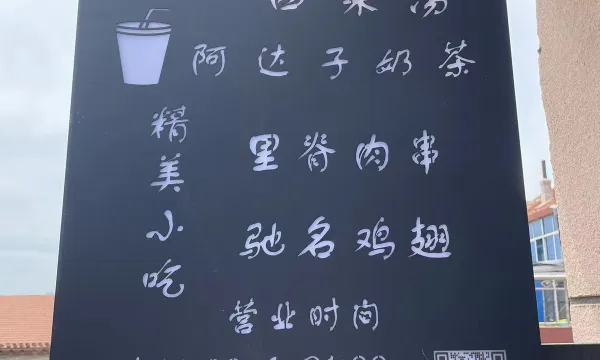 阿达子奶茶
精美小吃
里脊肉串
驰名鸡翅
营业时间